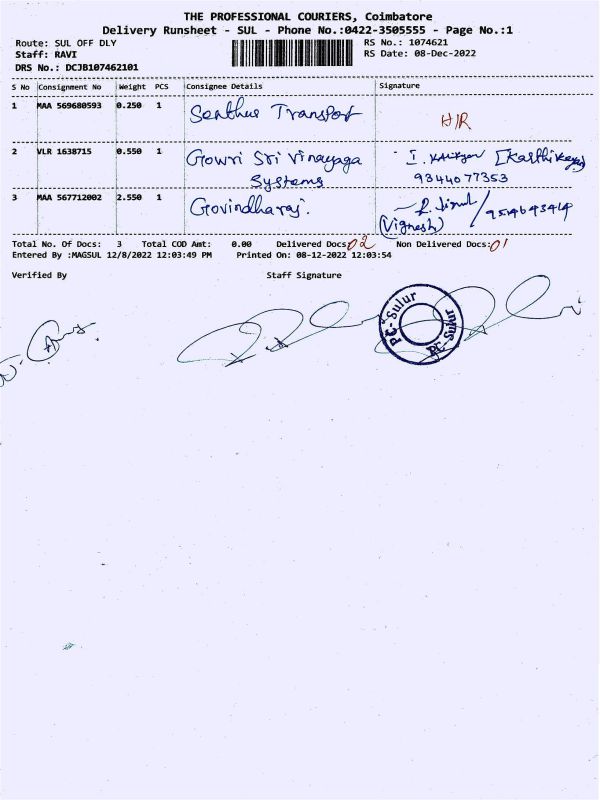 THE PROFESSIONAL COURIERS, Coimbatore
Delivery Runsheet - SUL - Phone No.:0422-3505555 - Page No.:1
Route: SUL OFF DLY RS No.: 1074621
Staff: RAVI RS Date: 08-Dec-2022
DRS No.: DCJB107462101
S No Consignment No Weight PCS Consignee Details Signature
1 MAA 569680593 0.250 1 Senthur Transport H/R
2 VLR 1638715 0.550 1 Gowri Sri Vinayaga [Karthikeya]
Systems 9344077353
3 MAA 567712002 2.550 1 Govindharaj.
(Vignesh)
Total No. Of Docs: 3 Total COD Amt: 0.00 Delivered Docs: 02 Non Delivered Docs: 01
Entered By :MAGSUL 12/8/2022 12:03:49 PM Printed On: 08-12-2022 12:03:54
Verified By Staff Signature
PC-Sulur
PC-Sulur